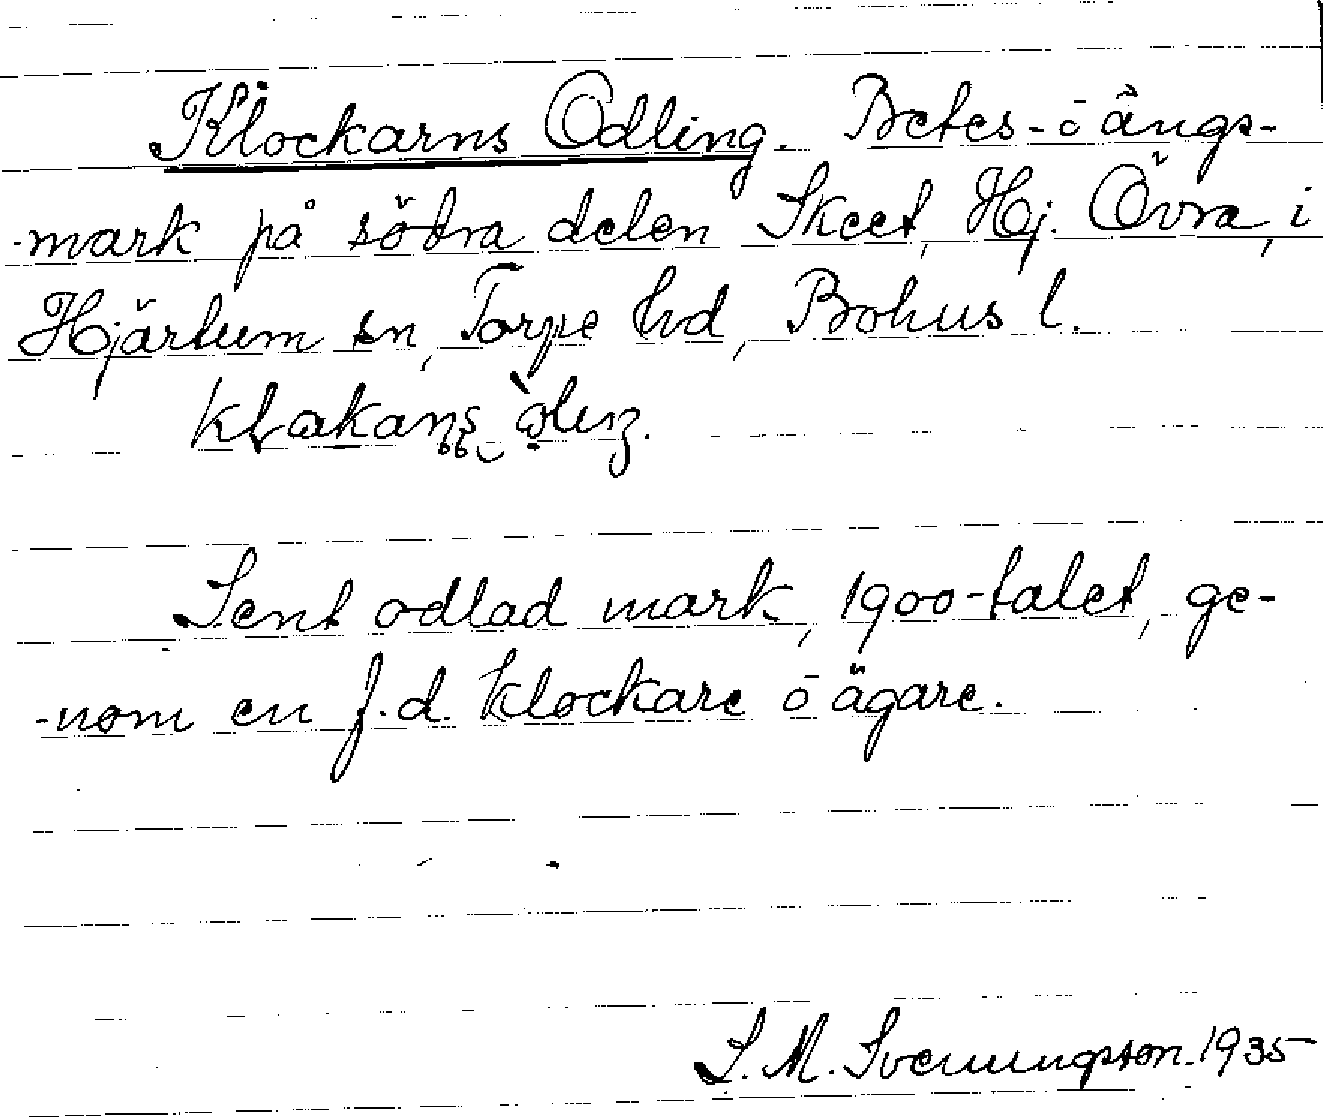 Klockarns Odling. Betes- ō ängs-
mark på södra delen Skeet, Hj. Övra, i
Hjärtum sn, Torpe hd, Bohus l.
Sent odlad mark, 1900-talet, ge-
nom en f.d. klockare ō ägare.
S. M. Svenungsson. 1935